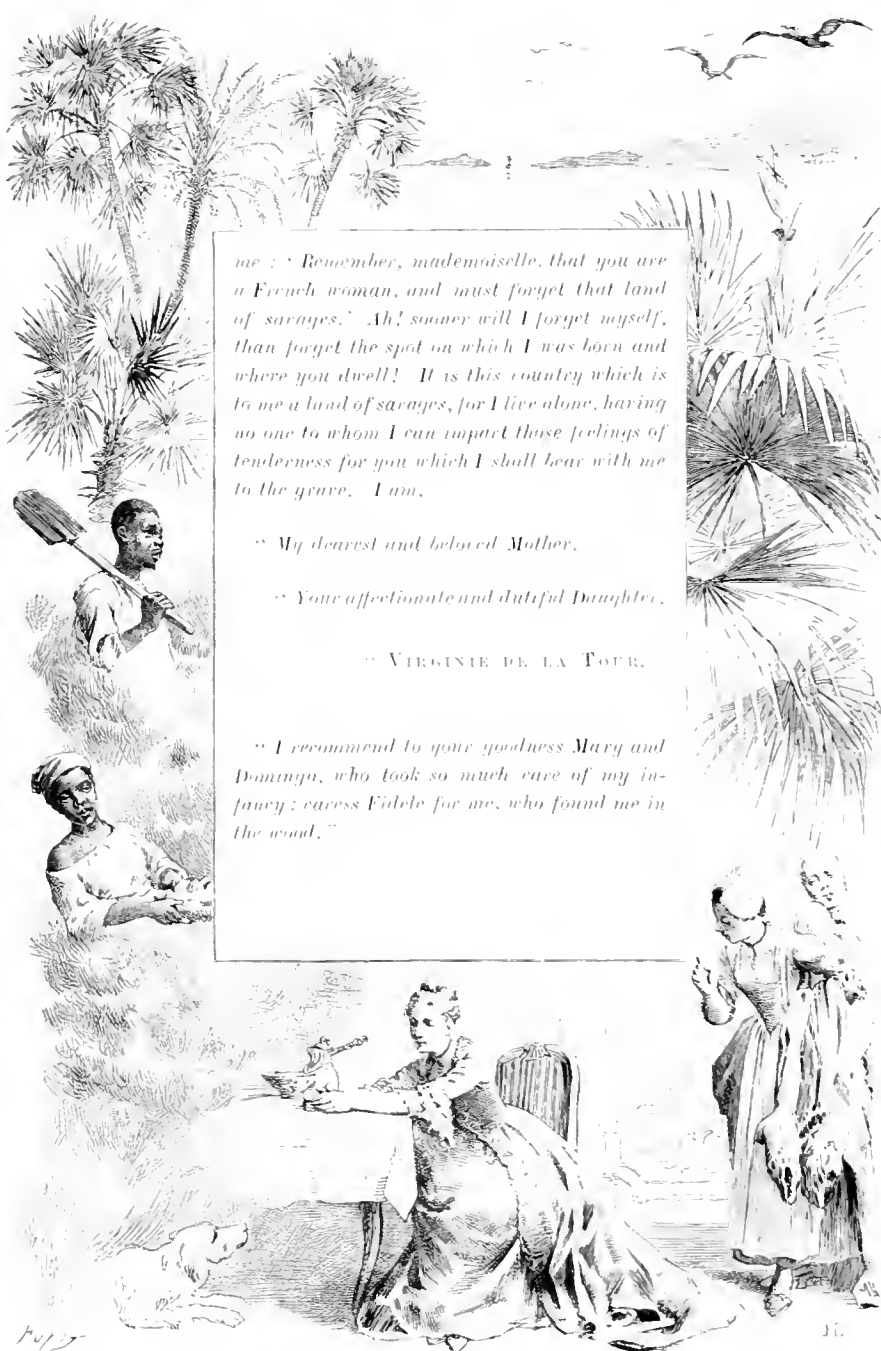 me : ‘ Remember, mademoiselle, that you are
a French woman, and must forget that land
of savages.’ Ah! sooner will I forget myself,
than forget the spot on which I was born and
where you dwell! It is this country which is
to me a land of savages, for I live alone, having
no one to whom I can impart those feelings of
tenderness for you which I shall bear with me
to the grave. I am,
“ My dearest and beloved Mother,
“ Your affectionate and dutiful Daughter,
“ VIRGINIE DE LA TOUR.
“ I recommend to your goodness Mary and
Domingo, who took so much care of my in-
fancy ; caress Fidele for me, who found me in
the wood.”